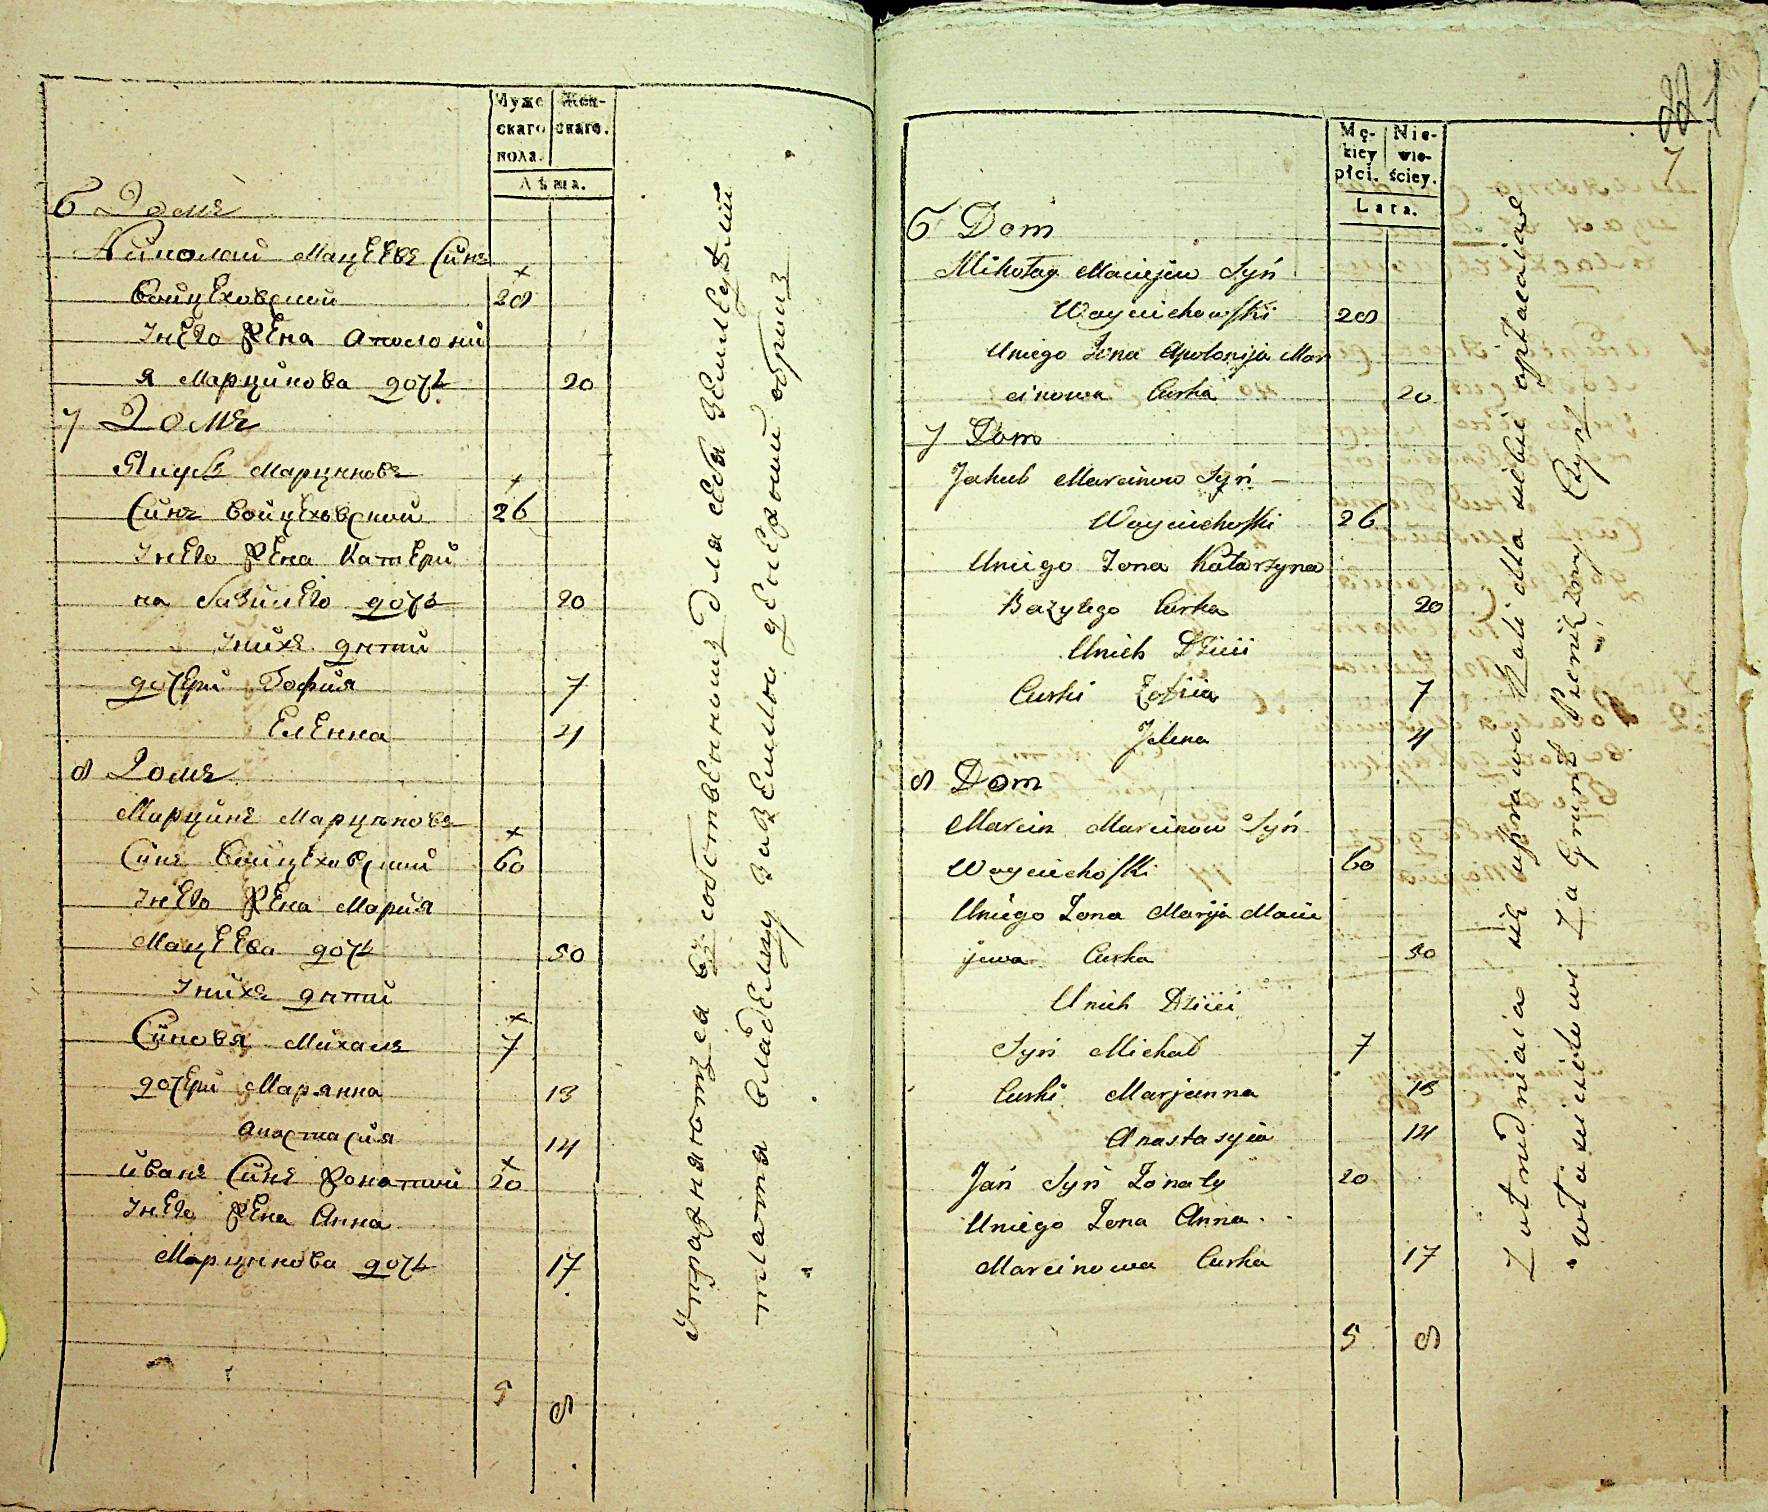 Муже Жен-
скаго скаго.
пола.
Лѣта.
6 Домъ
Николай Мацеевъ Синъ
Войцеховский 28
Унего жена аполони
я Марцинова дочь 20
7 Домъ
Якубъ Марциновъ
Синъ Войцеховский 26
Унего жена Катери
на Базилего дочь 20
Унихъ дѣти
дочери Зофия 7
Еленна 4
8 Домъ
Марцинъ Марциновъ
Синъ Войцеховский 60
Унего жена Мария
Мацеева дочь 50
Унихъ дѣти
Синовя Михалъ 7
дочери Марянна 13
анастасия 14
иванъ Синъ жонатий 20
Унего жена Анна
Марцинова дочь 17
5 8
Упражняютца въ собственномъ для себя земледелии
платя владелцу за землю денежный оброкъ
7
Mę- Nie-
kiey wie-
płci. ściey.
Lata.
6 Dom
Mikołay Maciejew Syń
Woyciechowski 28
Uniego Żona Apolonija Mar
cinowa Curka 20
7 Dom
Jakub Marcinow Syń
Woyciechoski 26
Uniego Żona Katarzyna
Bazylego Curka 20
Unich Dzieci
Curki Zofiia 7
Jelena 4
8 Dom
Marcin Marcinow Syń
Woyciechoski 60
Uniego Żona Marija Macie
jewa Curka 50
Unich Dzieci
Syń Michał 7
Curki Marjanna 13
Anastasyia 14
Jań Syń Żonaty 20
Uniego Żona Anna
Marcinowa Curka 17
5 8
Zatrudniaia się uprawą Roli dla siebie opłacaiąc
właścicielowi za Grunt Pieniężny Czynsz